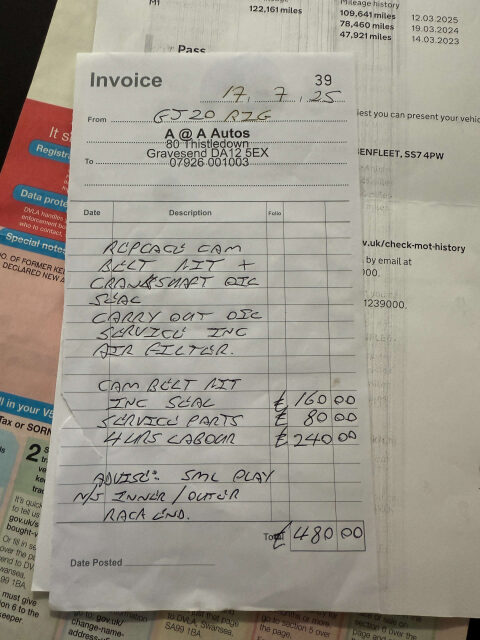 M1
122,161 miles
Mileage history
109,641 miles 12.03.2025
78,460 miles 19.03.2024
47,921 miles 14.03.2023
Pass
Invoice
39
17. 7. 25
From GJ20 RZG
A @ A Autos
80 Thistledown
Gravesend DA12 5EX
To 07926 001003
Date Description Folio
REPLACE CAM
BELT KIT +
CRANKSHAFT OIL
SEAL
CARRY OUT OIL
SERVICE INC
AIR FILTER.
CAM BELT KIT
INC SEAL £ 160 00
SERVICE PARTS £ 80 00
4 HRS LABOUR £ 240 00
ADVISE: SML PLAY
N/S INNER/OUTER
RACK END.
Total £ 480 00
Date Posted
iest you can present your vehic
BENFLEET, SS7 4PW
v.uk/check-mot-history
by email at
000.
1239000.
It's
Registr
Data prote
DVLA handles
enforcement bo
who to contact,
Special note
O. OF FORMER KE
DECLARED NEW A
ll in your V5
Tax or SORN
2
It's quick
to tell us
gov.uk/s
bought-v
Or fill in se
over the p
end to DV
wansea,
99 1BA
must give
on 6 to the
keeper.
go to: gov.uk/
change-name-
address-v
that page
to DVLA, Swansea,
SA99 1BA
section 6 over
the page.
section 6 over
the page.